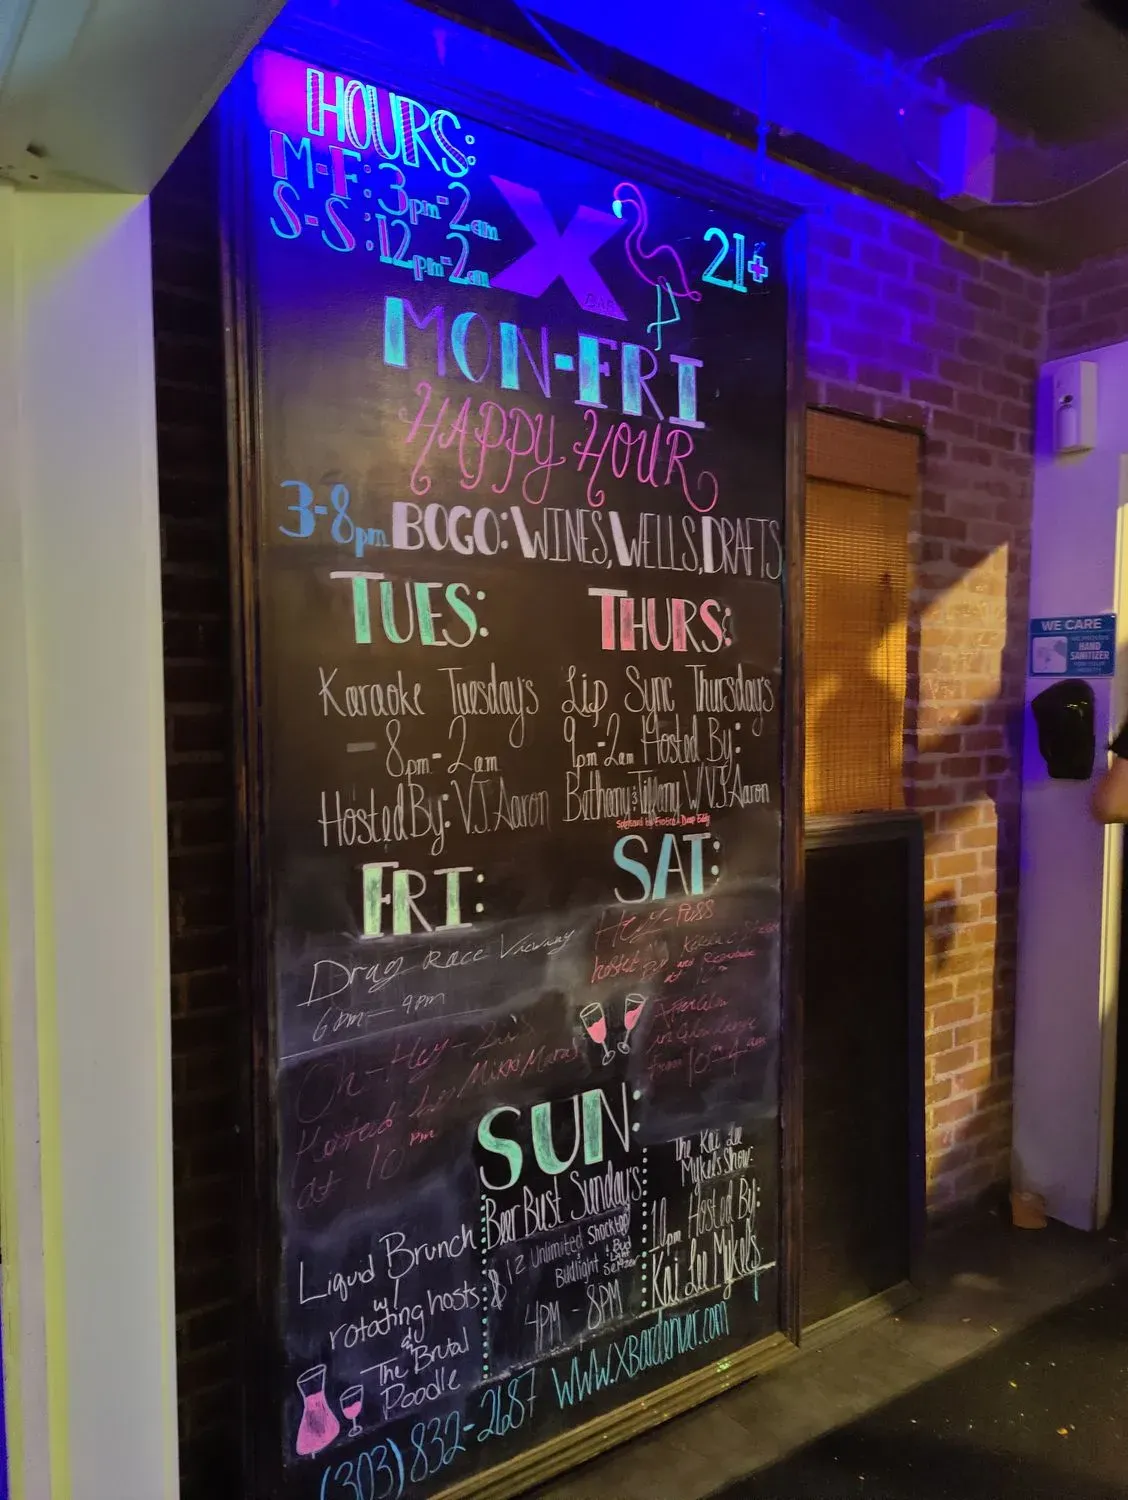 HOURS:
M-F: 3pm-2am
S-S: 12pm-2am
X
BAR
21+
MON-FRI
HAPPY HOUR
3-8pm BOGO: WINES, WELLS, DRAFTS
TUES:
Karaoke Tuesday's
8pm-2am
Hosted By: V.J. Aaron
THURS:
Lip Sync Thursday's
9pm-2am Hosted By:
Bethany & Tiffany W/ VJ Aaron
FRI:
Drag Race Viewing
6pm - 9pm
Oh-Hey-
Hosted by
at 10pm
SAT:
Hey-
hosted By
at
from 10 - 4 am
SUN:
Liquid Brunch
w/
rotating hosts
&
The Brutal
Poodle
Beer Bust Sunday's
$12 Unlimited Shocktop
Budlight & Bud Light Seltzer
4PM - 8PM
The Kai Lee
Mykel's Show:
10pm Hosted By:
Kai Lee Mykels
(303) 832-2687 WWW.XBardenver.com
WE CARE
HAND
SANITIZER